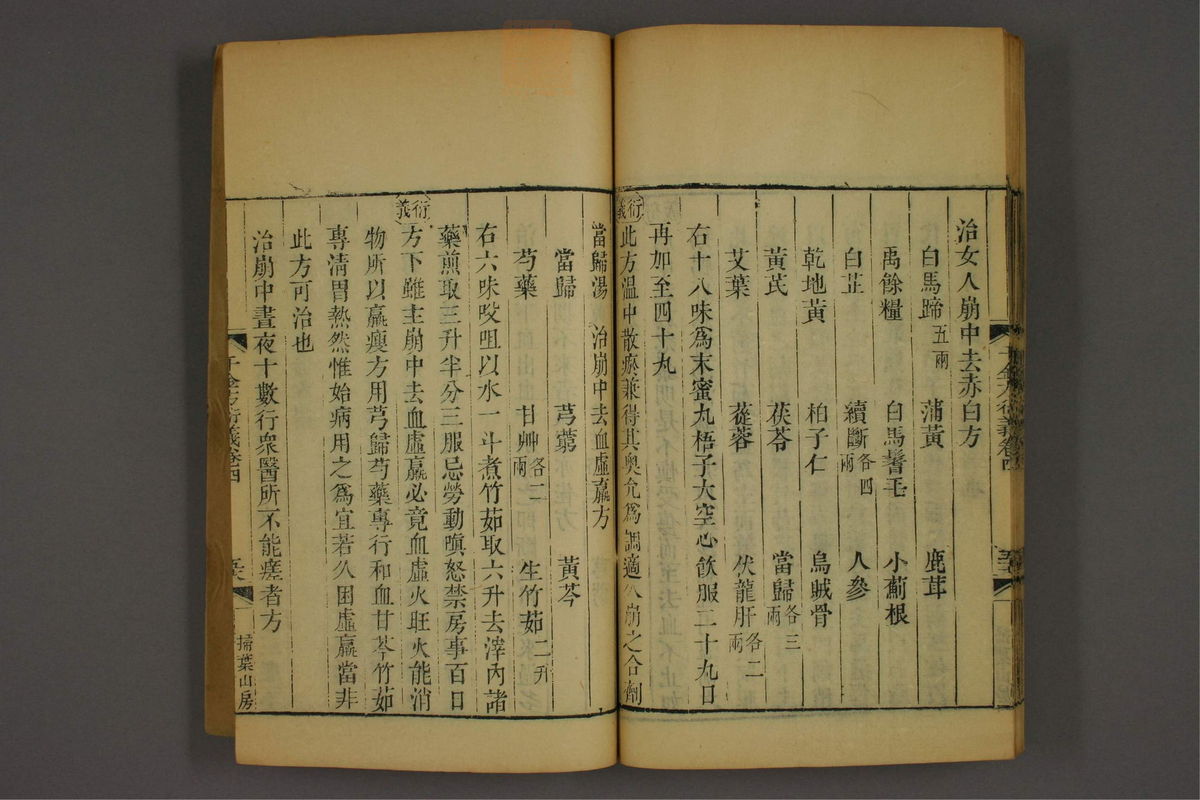 治女人崩中去赤白方
白馬蹄五兩 蒲黃 鹿茸
禹餘糧 白馬鬐毛 小薊根
白芷 續斷各四兩 人參
乾地黃 柏子仁 烏賊骨
黃芪 茯苓 當歸各三兩
艾葉 蓯蓉 伏龍肝各二兩
右十八味爲末蜜丸梧子大空心飲服二十九日
再加至四十丸
衍義此方溫中散瘀兼得其奧允爲調適久崩之合劑
當歸湯 治崩中去血虛羸方
當歸 芎藭 黃芩
芍藥 甘艸各二兩 生竹茹二升
右六味㕮咀以水一斗煮竹茹取六升去滓內諸
藥煎取三升半分三服忌勞動嗔怒禁房事百日
衍義方下雖主崩中去血虛羸必竟血虛火旺火能消
物所以羸瘦方用芎歸芍藥專行和血甘芩竹茹
專清胃熱然惟始病用之爲宜若久困虛羸當非
此方可治也
治崩中晝夜十數行衆醫所不能瘥者方
千金方衍義卷四
掃葉山房